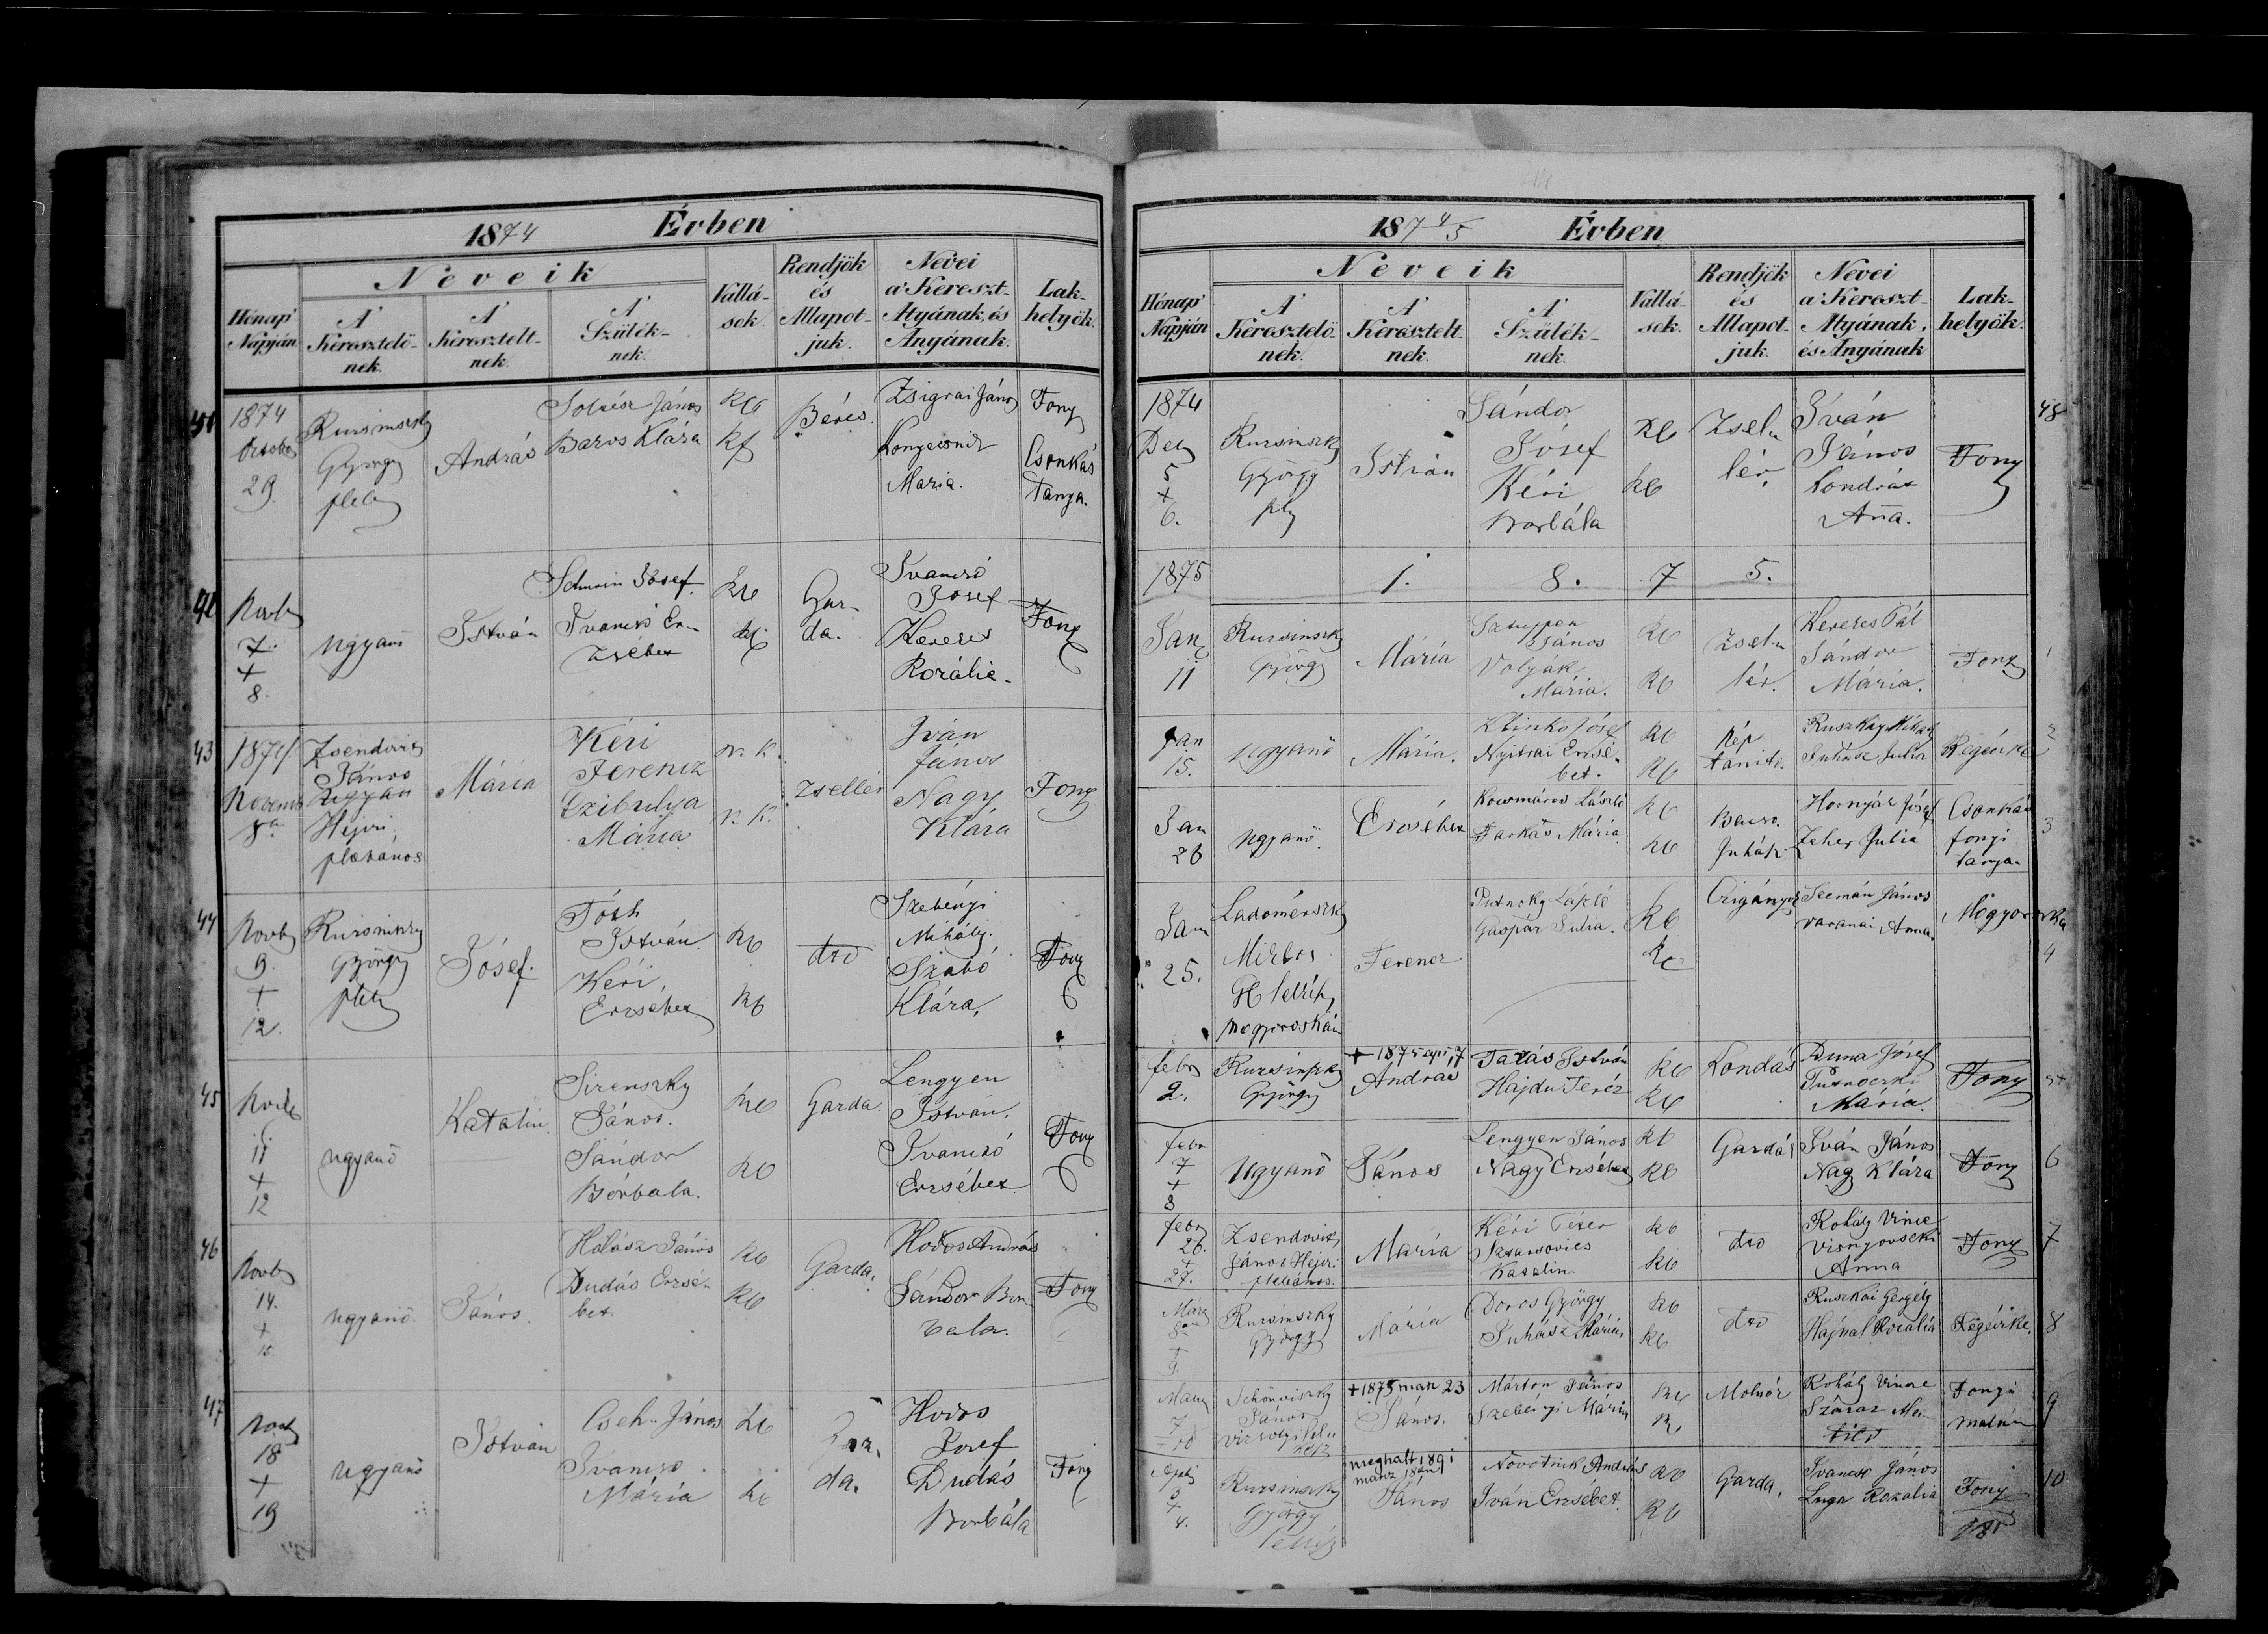 1874 Évben
Neveik
Hónap' Napján
A' Keresztelő-nek.
A' Keresztelt-nek.
A' Szülék-nek.
Vallá-sok.
Rendjök és Allapot-juk.
Nevei a' Kereszt-Atyának, és Anyának.
Lak-helyök.
1874
October
29.
Kursinszky
György
pleb
András
János
Baros Klára
Rk
Rf
Béres
Zsigrai János
Maria.
Fony
Csonkás
Tanya.
42
Novb
7.
+
8.
ugyanő
István
József.
Ivancsó Er-
zsébet
Gar-
da.
Ivancsó
József
Kerekes
Rozália.
Fony
43
1874.
Novemb
8án
Zsendovics
János
Hejczei
plebános
Mária
Kéri
Ferencz
Czibulya
Mária
r. k.
r. k.
zsellér
Iván
János
Nagy
Klára
Fony
44
Novb
9.
+
12.
Kursinszky
György
pleb
József.
Tóth
István.
Kéri
Erzsébet
Rk
Rk
dto
Szebényi
Mihály.
Szabó
Klára,
Fony
45
Novb
11
+
12
ugyanő
Katalin.
Sirenszky
János.
Sándor
Borbala.
Rk
Rk
Garda.
Lengyen
István.
Ivancsó
Erzsébet
Fony
46
Novb
14.
+
15.
ugyanő.
János.
Halász János
Dudás Erzsé-
bet.
Rk
Rk
Garda.
Hodos András
Sándor Bor-
bala.
Fony
47
Novb
18
+
19
ugyanő
István
Cseh János
Ivancsó
Mária
Rk
Rk
Gar-
da.
Hodos
József
Dudás
Borbála
Fony
1874/5 Évben
Neveik
Hónap' Napján
A' Keresztelő-nek.
A' Keresztelt-nek.
A' Szülék-nek.
Vallá-sok.
Rendjök és Allapot-juk.
Nevei a' Kereszt-Atyának, és Anyának
Lak-helyök.
48
1874
Dec
5
+
6.
Kursinszky
György
plb
István
Sándor
József
Kéri
Borbála
Rk
Rk
Zsel-
lér
Iván
János
Kondrát
Anna.
Fony
1875
1. 8. 7 5.
Jan
11
Kursinszky
György
Mária
János
Volyák
Mária.
Rk
Rk
Zsel-
lér.
Kerekes Pál
Sándor
Mária.
Fony
1
Jan
15.
ugyanő
Mária.
Klinko József
Nyitrai Erzsé-
bet.
Rk
Rk
Nép
tanító.
Ruszkay Mihály
Juhász Julia
Regéczke
2
Jan
26
ugyanő.
Erzsébet
László
Farkas Mária
Rk
Rk
Juhász
Hornyák József
Zeher Julia
Csonkás
fonyi
tanya
3
Jan
25.
Ladomérszky
Miklos
mogyoroskán
Ferencz
Putnoky László
Gaspár Julia.
Rk
Rk
Czigányok
Seemán János
Varanai Anna
Mogyoroska
4
febr
2.
Kursinszky
György
+ 1875 apr 17
András
István
Hajdu Teréz
Rk
Rk
Kondás
Duna József
Putnoczki
Maria.
Fony
5
febr
7
+
8
ugyanő
János
Lengyen János
Nagy Erzsébet
Rk
Rk
Gardás
Iván János
Nagy Klára
Fony
6
febr
26.
+
27.
Zsendovics
János Hejczei
plebános.
Mária
Kéri Péter
Katalin.
Rk
Rk
dto
Rohály Vincze
Visnyovszki
Anna
Fony
7
Márcz
8án
+
9.
Kursinszky
György
Mária
Doros György
Juhász Mária,
Rk
Rk
dto
Ruszkai Gergely
Hajnal Rozália
Regéczke,
8
7
10
János
+ 1875 márz 23
János.
Márton János
Szebényi Mária
Rk
Rk
Molnár
Rohály Vincze
Száraz Ma-
tild
Fonyi
malom
9
3
+
4.
Kursinszky
György
meghalt 1891
márcz 18án
János
Novotnik András
Iván Erzsébet.
Rk
Rk
Garda,
Ivancsó János
Luga Rozália
Fony
10